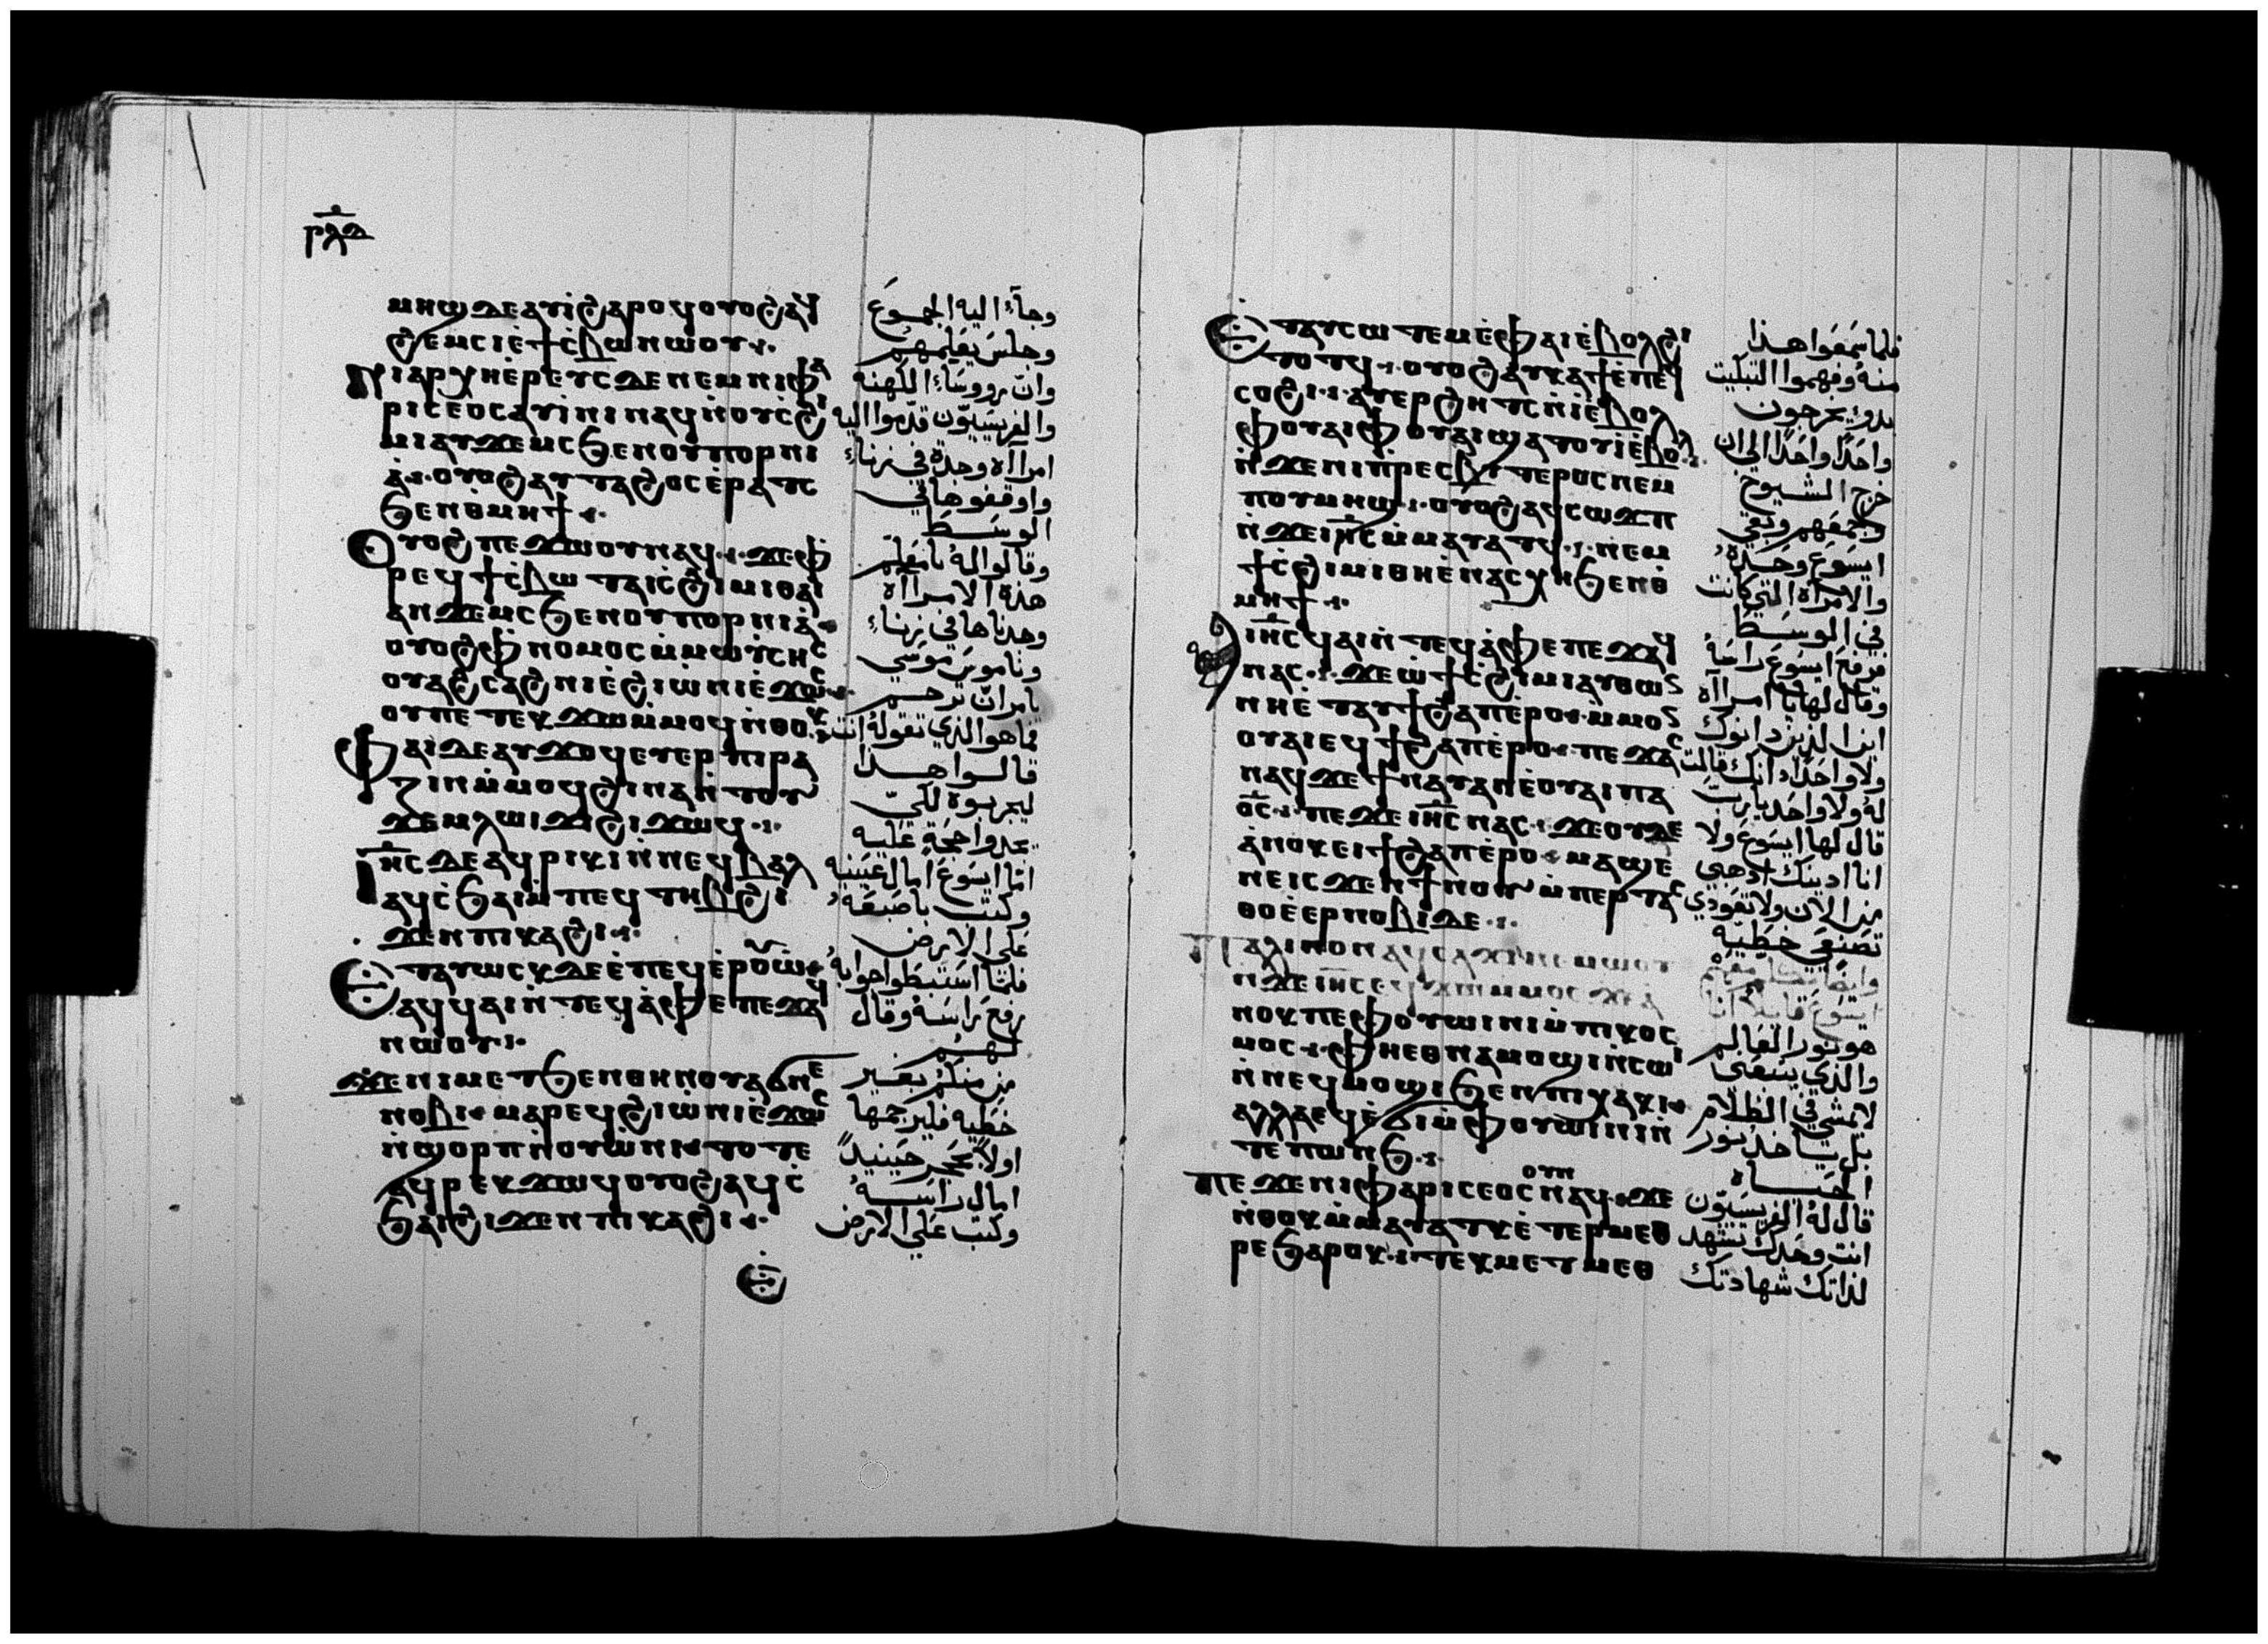 ⲣⲗⲇ
ⲙⲏϣ ⲇⲉ ⲁⲩⲓ̀ ϩⲁⲣⲟϥ ⲟⲩⲟϩ ⲁϥ
ϩⲉⲙⲥⲓ ⲉ̀ϯⲥ̀ⲃⲱ ⲛⲱⲟⲩ
ⲛⲓⲁⲣⲭⲏⲉ̀ⲣⲉⲩⲥ ⲇⲉ ⲛⲉⲙ ⲛⲓⲫⲁ
ⲣⲓⲥⲉⲟⲥ ⲁⲩⲓ̀ⲛⲓ ⲛⲁϥ ⲛ̀ⲟⲩⲥ̀ϩⲓ
ⲙⲓ ⲁⲩϫⲉⲙⲥ ϧⲉⲛ ⲟⲩⲡⲟⲣⲛⲓ
ⲁ̀ ⲟⲩⲟϩ ⲁⲩⲧⲁϩⲟⲥ ⲉ̀ⲣⲁⲧⲥ
ϧⲉⲛ ⲑ̀ⲙⲏϯ
ⲟⲩⲟϩ ⲡⲉϫⲱⲟⲩ ⲛⲁϥ ϫⲉ ⲫ
ⲣⲉϥϯⲥ̀ⲃⲱ ⲧⲁⲓⲥ̀ϩⲓⲙⲓ ⲑⲁⲓ
ⲁⲛϫⲉⲙⲥ ϧⲉⲛ ⲟⲩⲡⲟⲣⲛⲓⲁ̀
ⲟⲩⲟϩ ⲫⲛⲟⲙⲟⲥ ⲙ̀ⲙⲱⲩⲥⲏⲥ
ⲟⲩⲁϩⲥⲁϩⲛⲓ ⲉ̀ϩⲓⲱ̀ⲛⲓ ⲉ̀ϫⲱⲥ
ⲟⲩ ⲡⲉ ⲧⲉⲕϫⲱ ⲙ̀ⲙⲟϥ ⲛ̀ⲑⲟⲕ
ⲫⲁⲓ ⲇⲉ ⲁⲩϫⲟϥ ⲉⲩⲉⲣⲡⲓⲣⲁ
ⲍⲓⲛ ⲙ̀ⲙⲟϥ ϩⲓⲛⲁ ⲛ̀ⲧⲟⲩ
ϫⲉⲙ ⲗⲱⲓϫⲓ ϩⲓϫⲱϥ
ⲓⲏⲥ ⲇⲉ ⲁϥⲣⲓⲕⲓ ⲛ̀ⲛⲉϥⲃⲁⲗ
ⲁϥⲥ̀ϧⲁⲓ ⲙ̀ⲡⲉϥⲧⲏⲃ ϩⲓ
ϫⲉⲛ ⲡⲓⲕⲁϩⲓ
ⲉⲧⲁⲩⲱⲥⲕ ⲇⲉ ⲉ̀ⲡⲉϥⲉ̀ⲣⲟⲩⲱ̀
ⲁϥϥⲁⲓ ⲛ̀ⲧⲉϥⲁ̀ⲫⲉ ⲡⲉϫⲁϥ
ⲛⲱⲟⲩ
ϫⲉ ⲛⲓⲙ ⲉⲧϧⲉⲛ ⲑⲏⲛⲟⲩ ⲁϭⲛⲉ
ⲛⲟⲃⲓ ⲙⲁⲣⲉϥϩⲓⲱ̀ⲛⲓ ⲉ̀ϫⲱⲥ
ⲛ̀ϣⲟⲣⲡ ⲛ̀ⲟⲩⲱ̀ⲛⲓ ⲧⲟⲧⲉ
ⲁϥⲣⲉⲕ ϫⲱϥ ⲟⲩⲟϩ ⲁϥⲥ̀
ϧⲁⲓ ϩⲓϫⲉⲛ ⲡⲓⲕⲁϩⲓ
ⲉ
وجآء اليه الجموع
وجلس يعلمهم
وان روؤساء الكهنة
والفريسيون قدموا اليه
امرأه وجدة في زناء
واوقفوها في
الوسط
وقالوا له يا معلم
هذه الامرأه
وجدناها في زناء
وناموس موسي
يامر ان ترجم
فما هو الذي تقوله انت
قالوا هذا
ليجربوه لكي
يجدوا حجة عليه
امّا ايسوع امال عينيه
وكتب باصبعه
علي الارض
فلمّا استبطوا جوابه
رفع راسه وقال
لهم
من منكم بغير
خطيه فليرجمها
اولاً بحجر حينيذ
امال راسه
وكتب علي الارض
ⲉⲧⲁⲩⲥⲱⲧⲉⲙ ⲉ̀ⲫⲁⲓ ⲉ̀ⲃⲟⲗ ϩⲓ
ⲧⲟⲧϥ ⲟⲩⲟϩ ⲁⲩⲕⲁϯ ⲉ̀ⲡⲉϥ
ⲥⲟϩⲓ ⲁⲩⲉⲣϩⲏⲧⲥ ⲛ̀ⲓ̀ ⲉ̀ⲃⲟⲗ
ⲫⲟⲩⲁⲓ ⲫⲟⲩⲁⲓ ϣⲁⲧⲟⲩⲓ̀ ⲉ̀ⲃⲟⲗ
ⲛ̀ϫⲉ ⲛⲓⲡ̀ⲣⲉⲥⲃⲩⲧⲉⲣⲟⲥ ⲛⲉⲙ
ⲡⲟⲩⲙⲏϣ ⲟⲩⲟϩ ⲁϥⲥⲱϫⲡ
ⲛ̀ϫⲉ ⲓⲏⲥ ⲙ̀ⲙⲁⲩⲁⲧϥ ⲛⲉⲙ
ϯⲥ̀ϩⲓⲙⲓ ⲑⲏ ⲉ̀ⲛⲁⲥⲭⲏ ϧⲉⲛ ⲑ̀
ⲙⲏϯ
ⲓⲏⲥ ϥⲁⲓ ⲛ̀ⲧⲉϥⲁ̀ⲫⲉ ⲡⲉϫⲁϥ
ⲛⲁⲥ ϫⲉ ⲱ̀ ϯⲥ̀ϩⲓⲙⲓ ⲁⲩⲑⲱⲛ
ⲛⲏ ⲉ̀ⲧⲁⲩϯϩⲁⲡ ⲉ̀ⲣⲟ ⲙ̀ⲙⲟⲛ
ⲟⲩⲁⲓ ⲉϥϯϩⲁⲡ ⲉ̀ⲣⲟ ⲡⲉϫⲁⲥ
ⲛⲁϥ ϫⲉ ⲡⲁϭⲥ
ⲟⲥ ⲡⲉϫⲉ ⲓⲏⲥ ⲛⲁⲥ ϫⲉ ⲟⲩⲇⲉ
ⲁ̀ⲛⲟⲕ ϯϩⲁⲡ ⲉ̀ⲣⲟ ⲙⲁϣⲉ
ⲛⲉ ⲓⲥϫⲉⲛ ϯⲛⲟⲩ ⲙ̀ⲡⲉⲣⲧⲁⲥ
ⲑⲟ ⲉ̀ⲉⲣⲛⲟⲃⲓ ϫⲉ
ⲡⲁⲗⲓⲛ ⲟⲛ ⲁϥⲥⲁϫⲓ ⲛⲉⲙⲱⲟⲩ
ⲛ̀ϫⲉ ⲓⲏⲥ ⲉϥϫⲱ ⲙ̀ⲙⲟⲥ ϫⲉ ⲁ̀
ⲛⲟⲕ ⲡⲉ ⲫⲟⲩⲱⲓⲛⲓ ⲙ̀ⲡⲓⲕⲟⲥ
ⲙⲟⲥ ⲫⲏ ⲉⲑⲛⲁⲙⲟϣⲓ ⲛ̀ⲥⲱⲓ
ⲛ̀ⲛⲉϥⲙⲟϣⲓ ϧⲉⲛ ⲡⲓⲭⲁⲕⲓ
ⲁⲗⲗⲁ ⲉϥⲉ̀ϭⲓ ⲙ̀ⲫⲟⲩⲱⲓⲛⲓ ⲛ̀
ⲧⲉ ⲡⲱⲛϧ
ⲡⲉϫⲉ ⲛⲓⲫⲁⲣⲓⲥⲉⲟⲥ ⲟⲩⲛ ⲛⲁϥ ϫⲉ
ⲛ̀ⲑⲟⲕ ⲙ̀ⲙⲁⲩⲁⲧⲕ ⲉ̀ⲧⲉⲣⲙⲉⲑ
ⲣⲉ ϧⲁⲣⲟⲕ ⲧⲉⲕⲙⲉⲧⲙⲉⲑ
فلما سمعوا هذا
منه وفهموا التبكيت
بدوء يخرجون
واحدًا واحدًا الي ان
خرج الشيوخ
وجمعهم وبقي
ايسوع وحده
والامرأه التي كانت
في الوسط
فرفع ايسوع راسه
وقال لها يا امرأه
اين الذين دانوك
ولا واحد ادانك قالت
له ولا واحد يا رب
قال لها ايسوع ولا
انا ادينك اذهبي
من الان ولا تعودي
تصنع خطيه
ايسوع قايلا انا
هو نور العالم
والذي يتبعني
لا يمشي في الظلام
بل ياخذ نور
الحياه
قال له الفريسيون
انت وحدك تشهد
لذاتك شهادتك